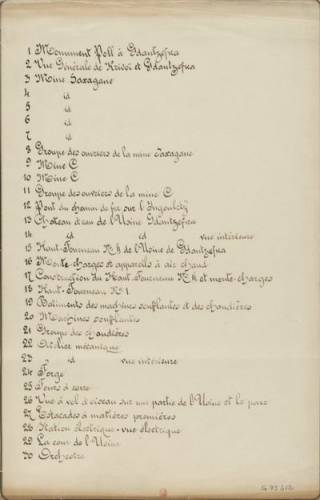 1 Monument Poll à Gdantzefka
2 Vue Générale de Krivoï et Gdantzefka
3 Mine Saxagane
4 id
5 id
6 id
7 id
8 Groupe des ouvriers de la mine Saxagane
9 Mine C
10 Mine C
11 Groupe des ouvriers de la mine C
12 Pont du chemin de fer sur l'Ingouletz
13 Château d'eau de l'Usine Gdantzefka
14 id id vue intérieure
15 Haut-Fourneau N° 4 de l'Usine de Gdantzefka
16 Monte charges et appareils à air chaud
17 Construction du Haut-Fourneau N° 4 et monte-charges
18 Haut-Fourneau N° 1
19 Batiments des machines soufflantes et des chaudières
20 Machines soufflantes
21 Groupe des chaudières
22 Atelier mécanique
23 id vue intérieure
24 Forge
25 Fours à
26 Vue à vol d'oiseau sur une partie de l'Usine et le parc
27 Estacades à matières premières
28 Station électrique - vue électrique
29 La cour de l'Usine
30 Orchestre